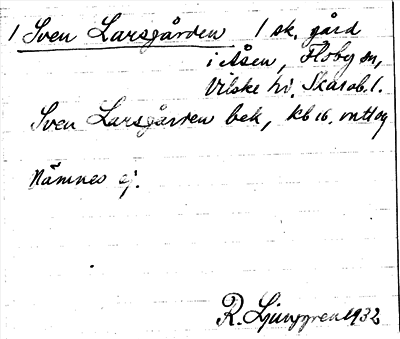 1 Sven Larsgården 1 sk. gård
i Åsen, Floby sn,
Vilske hd. Skarab. l.
Sven Larsgården bek, kb
Nämnes ej.
R. Ljunggren 1932